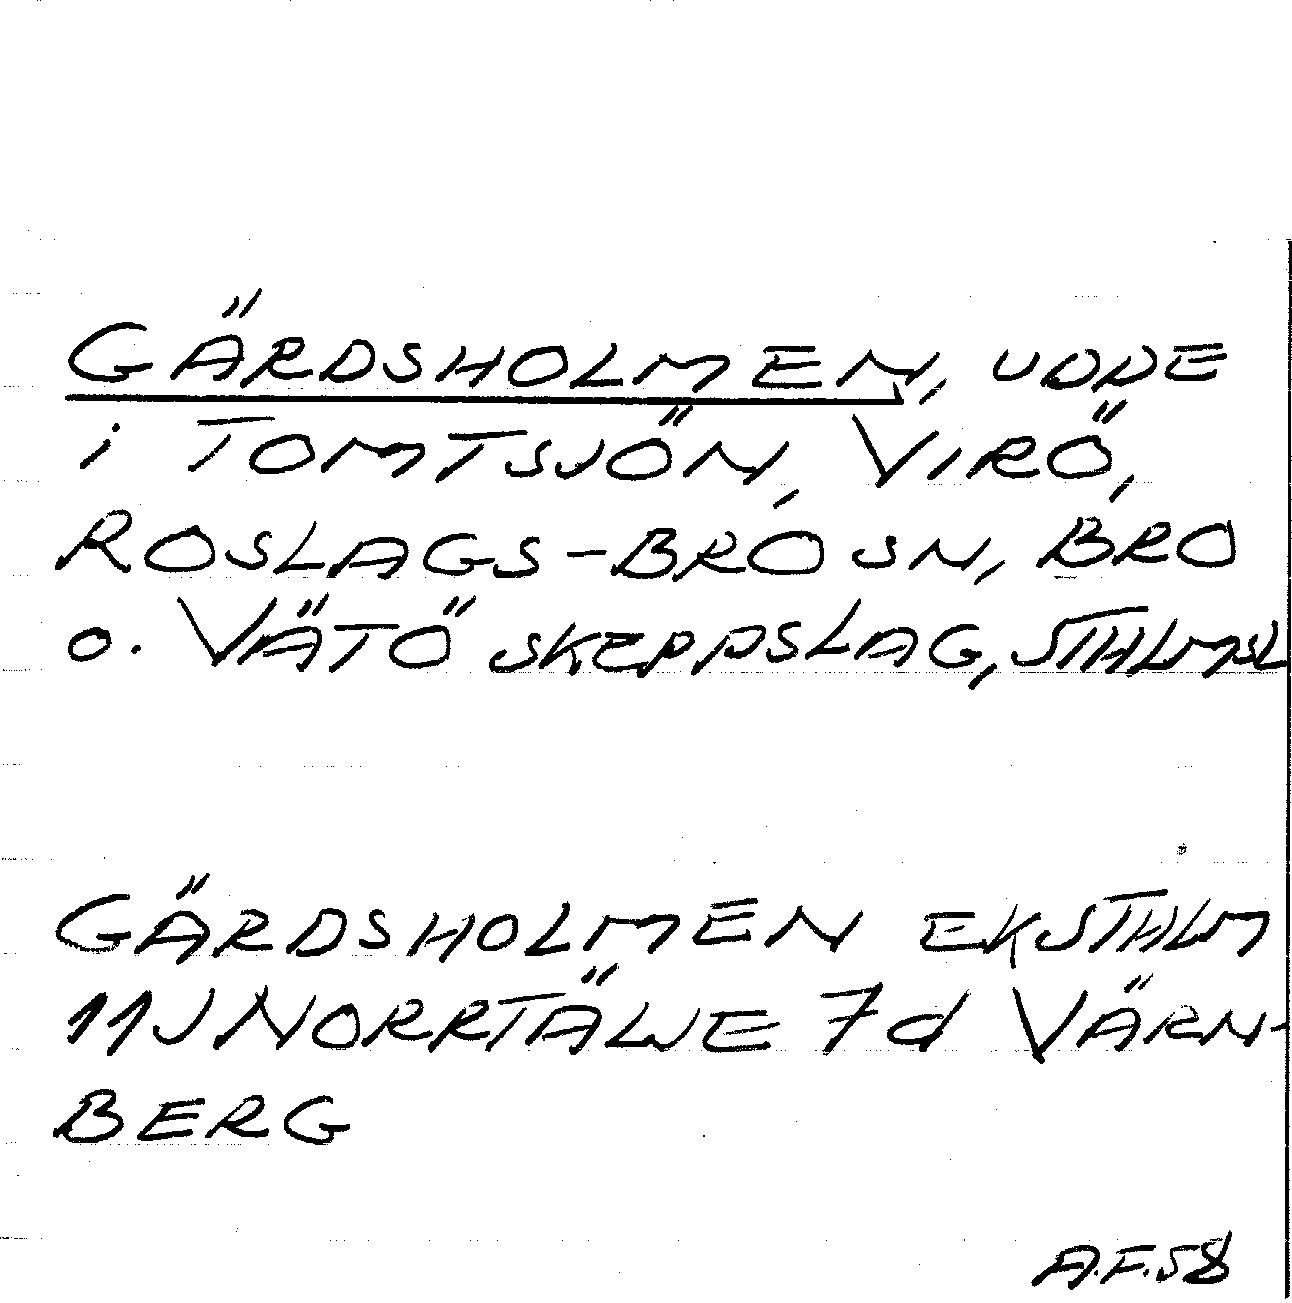 GÄRDSHOLMEN, UDDE
i TOMTSJÖN, VIRÖ,
ROSLAGS-BRO SN, BRO
o. VÄTÖ SKEPPSLAG, STHLMSL
GÄRDSHOLMEN EKSTHLM
11J NORRTÄLJE 7d VÄRN-
BERG
A.F.58